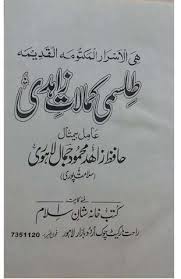 هی الاسرار المکتومہ القدیمہ
طلسمی کمالات زاہدی
عامل بیمثال
حافظ زاھد محمود جمال لاہوری
(سلامت پوری)
کتب خانہ شان اسلام
راحت مارکیٹ چوک اردو بازار لاہور فون نمبر: 7351120